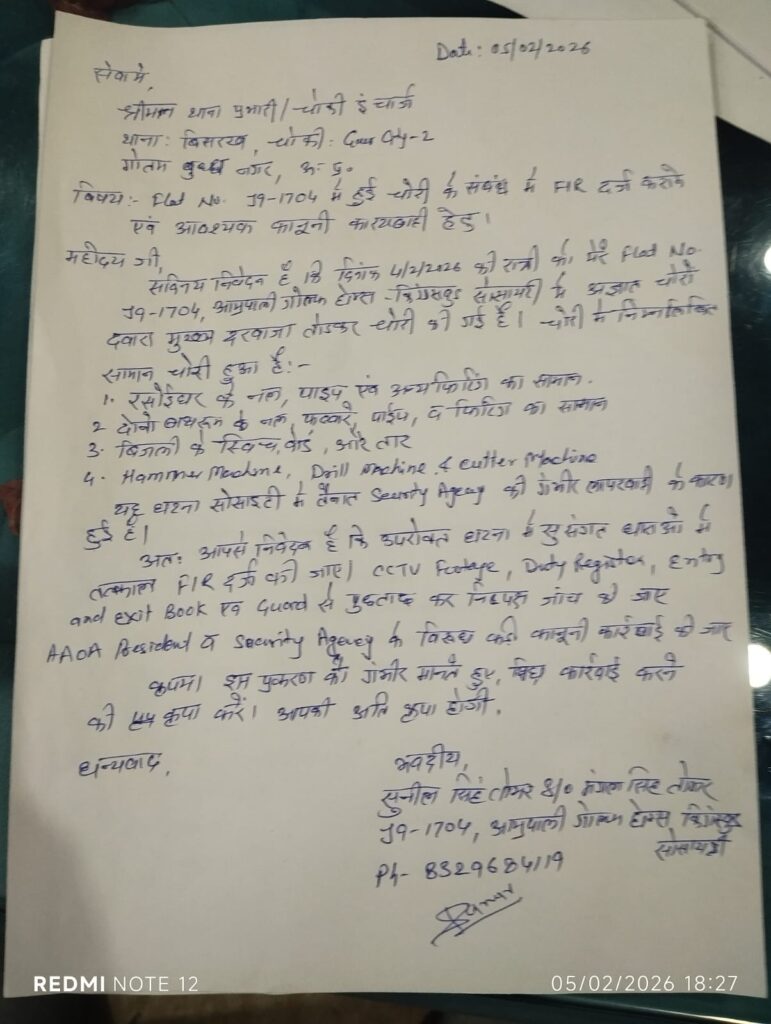 Date: 05/02/2026
सेवा मे,
श्रीमान थाना प्रभारी/चोकी इंचार्ज
थाना: बिसरख, चोकी: Gaur City-2
गोतम बुध्ध नगर, उ. प्र.
विषय:- Flat No. J9-1704 मे हुई चोरी के संबंध मे FIR दर्ज कराने
एवं आवश्यक कानूनी कारयवाही हेतु।
महोदय जी,
सविनय निवेदन है कि दिनांक 4/2/2026 की रात्री को मेरे Flat No.
J9-1704, आम्रपाली गोल्फ होम्स - किंग्सवुड सोसायटी मे अज्ञात चोरो
द्वारा मुख्य दरवाजा तोडकर चोरी की गई है। चोरी मे निम्नलिखित
सामान चोरी हुआ है:-
1. रसोईघर के नल, पाइप एवं अन्य फिटिंग का सामान.
2. दोनो बाथरूम के नल, फव्वारे, पाईप, व फिटिंग का सामान
3. बिजली के स्विच, बोर्ड, और तार
4. Hammer Machine, Drill Machine & Cutter Machine
यह घटना सोसाइटी मे तैनात Security Agency की गंभीर लापरवाही के कारण
हुई है।
अतः आपसे निवेदन है कि उपरोक्त घटना मे सुसंगत धाराओ मे
तत्काल FIR दर्ज की जाए। CCTV Footage, Duty Register, Entry
and exit Book एवं Guard से पुछताछ कर निष्पक्ष जांच की जाए
AAOA President व Security Agency के विरुध कडी कानूनी कार्रवाई की जाए
कृपया इस प्रकरण को गंभीर मानते हुए, विधि कार्रवाई करने
की कृपा करें। आपकी अति कृपा होगी.
धन्यवाद,
भवदीय,
सुनील सिंह तोमर S/o मंगल सिंह तोमर
J9-1704, आम्रपाली गोल्फ होम्स, किंग्सवुड
सोसायटी
Ph- 8329684119
REDMI NOTE 12
05/02/2026 18:27